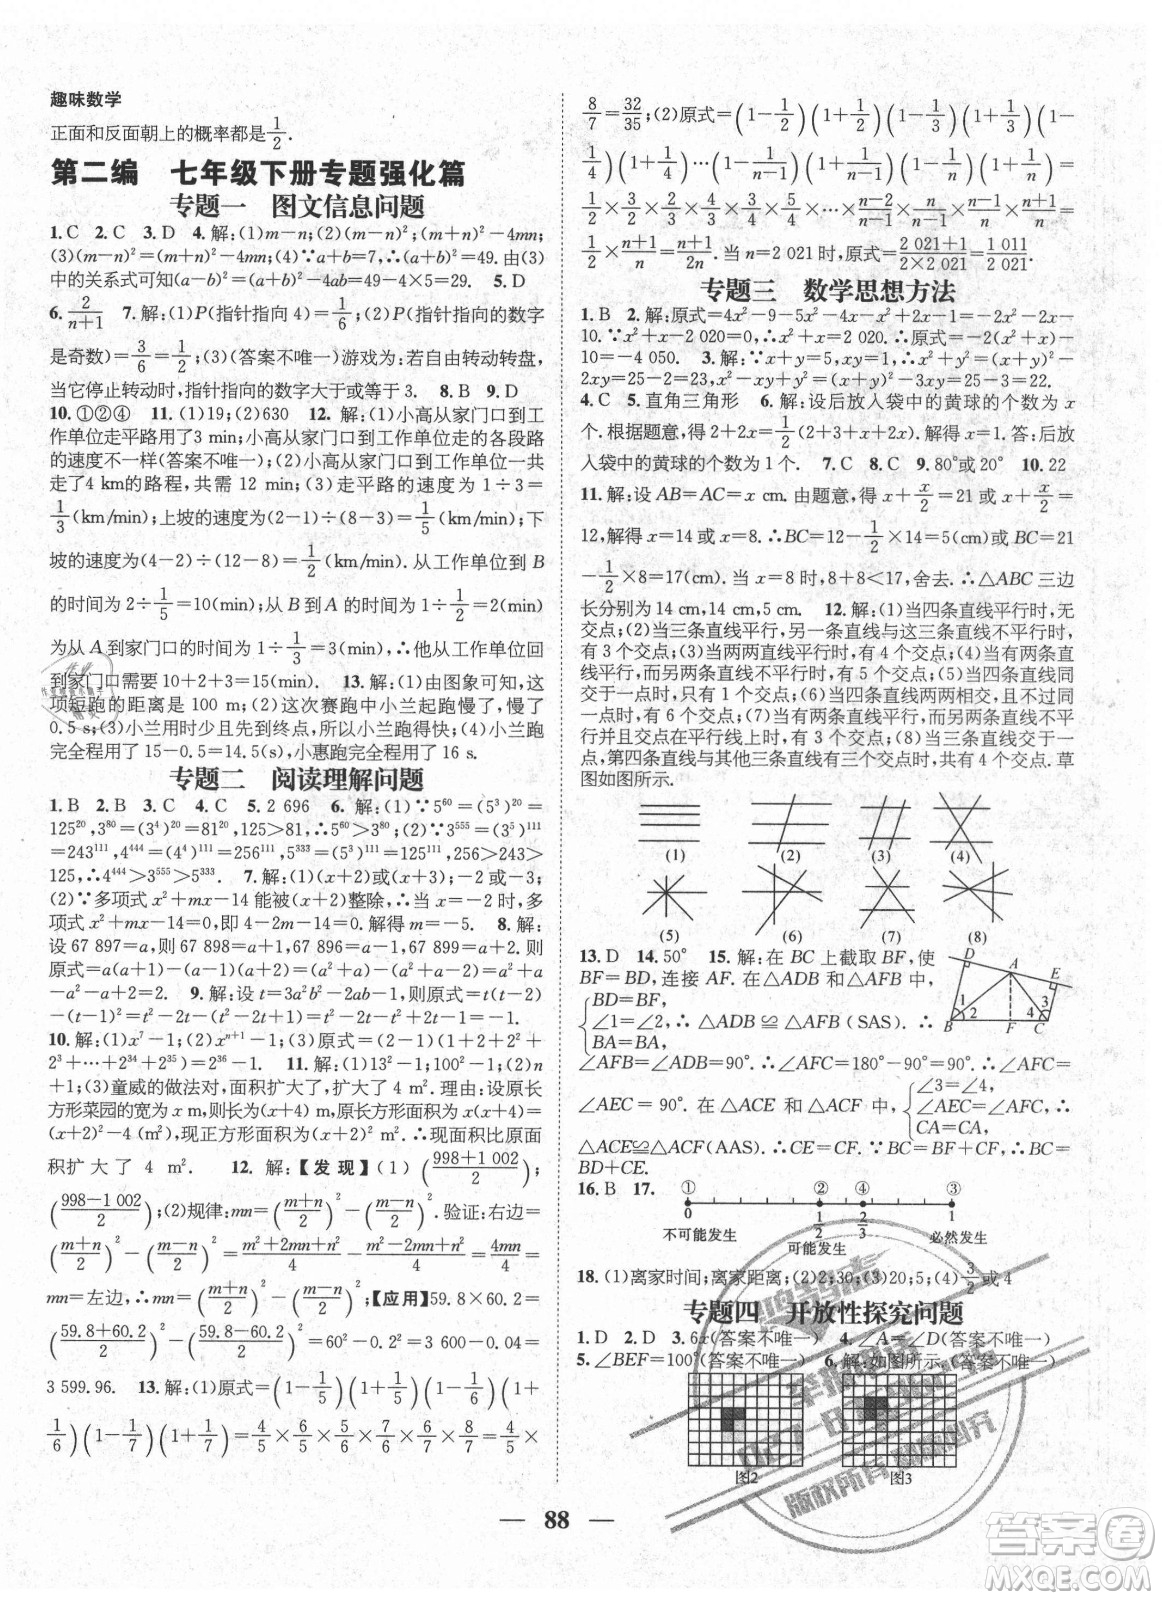 趣味数学
正面和反面朝上的概率都是1/2.
第二编 七年级下册专题强化篇
专题一 图文信息问题
1.C 2.C 3.D 4.解:(1)m-n;(2)(m-n)²;(m+n)²-4mn;
(3)(m-n)²=(m+n)²-4mn;(4)∵a+b=7,∴(a+b)²=49.由(3)
中的关系式可知(a-b)²=(a+b)²-4ab=49-4×5=29. 5.D
6.2/(n+1) 7.解:(1)P(指针指向4)=1/6;(2)P(指针指向的数字
是奇数)=3/6=1/2;(3)(答案不唯一)游戏为:任意转动转盘,
当它停止转动时,指针指向的数字大于或等于3. 8.B 9.D
10.①②④ 11.(1)19;(2)630 12.解:(1)小高从家门口到工
作单位走平路用了3 min;小高从家门口到工作单位走的各段路
的速度不一样(答案不唯一);(2)小高从家门口到工作单位一共
走了4 km的路程,共需 12 min;(3)走平路的速度为1÷3=
1/3(km/min);上坡的速度为(2-1)÷(8-3)=1/5(km/min);下
坡的速度为(4-2)÷(12-8)=1/2(km/min).从工作单位到B
的时间为2÷1/5=10(min),从B到A的时间为1÷1/2=2(min),
因为从A到家门口的时间为1÷1/3=3(min),所以他从工作单位
到家门口需要10+2+3=15(min). 13.解:(1)由图象可知,这
项短跑的距离是100 m;(2)这次赛跑中小兰起跑慢了,慢了
0.5 s;(3)小兰用时少且先到终点,所以小兰跑得快;(4)小兰跑
完全程用了15-0.5=14.5(s),小惠跑完全程用了16 s.
专题二 阅读理解问题
1.B 2.B 3.C 4.C 5.2 696 6.解:(1)∵5⁶⁰=(5³)²⁰=
125²⁰,3⁸⁰=(3⁴)²⁰=81²⁰,125>81,∴5⁶⁰>3⁸⁰;(2)∵3⁵⁵⁵=(3⁵)¹¹¹
=243¹¹¹,4⁴⁴⁴=(4⁴)¹¹¹=256¹¹¹,5³³³=(5³)¹¹¹=125¹¹¹,256>243>
125,∴4⁴⁴⁴>3⁵⁵⁵>5³³³. 7.解:(1)x+2或(x+3);-2或-3;
(2)∵多项式x²+mx-14能被(x+2)整除,∴当x=-2时,多
项式x²+mx-14=0,即4-2m-14=0.解得m=-5. 8.解:
设67 897=a,则67 898=a+1,67 896=a-1,67 899=a+2.则
原式=a(a+1)-(a-1)(a+2)=(a²+a)-(a²+a-2)=a²+
a-a²-a+2=2. 9.解:设t=3a²b²-2ab+1,则原式=t(t-2)
-(t-1)²=t²-2t-(t²-2t+1)=t²-2t-t²+2t-1=-1.
10.解:(1)x⁷-1;(2)xⁿ⁺¹-1;(3)原式=(2-1)(1+2+2²+
2³+…+2³⁴+2³⁵)=2³⁶-1. 11.解:(1)13²-1;100²-1;(2)n
+1;(3)童威的做法对,面积扩大了,扩大了4 m².理由:设原长
方形菜园的宽为x m,则长为(x+4) m,原长方形面积为x(x+4)
=(x+2)²-4 (m²),现正方形面积为(x+2)² m²,∴现面积比原
面积扩大了4 m². 12.解:【发现】(1)((998+1 002)/2)²;
((998-1 002)/2)²;(2)规律:mn=((m+n)/2)²-((m-n)/2)².验证:右边=
((m+n)/2)²-((m-n)/2)²=(m²+2mn+n²)/4-(m²-2mn+n²)/4=4mn/4=
mn=左边,∴mn=((m+n)/2)²-((m-n)/2)²;【应用】59.8×60.2=
((59.8+60.2)/2)²-((59.8-60.2)/2)²=60²-0.2²=3 600-0.04=
3 599.96. 13.解:(1)原式=(1-1/5)(1+1/5)(1-1/6)(1+
1/6)(1-1/7)(1+1/7)=4/5×6/5×5/6×7/6×6/7×8/7=4/5×
8/7=32/35;(2)原式=(1-1/2)(1+1/2)(1-1/3)(1+1/3)(1-
1/4)(1+1/4)…(1-1/(n-1))(1+1/(n-1))(1-1/n)(1+1/n)=
1/2×3/2×2/3×4/3×3/4×5/4×…×(n-2)/(n-1)×n/(n-1)×(n-1)/n×(n+1)/n=
1/2×(n+1)/n=(n+1)/2n.当n=2 021时,原式=(2 021+1)/(2×2 021)=1 011/2 021.
专题三 数学思想方法
1.B 2.解:原式=4x²-9-5x²-4x-x²+2x-1=-2x²-2x-
10.∵x²+x-2 020=0,∴x²+x=2 020.∴原式=-2(x²+x)-
10=-4 050. 3.解:∵x+y=5,xy=1,∴x²+y²=(x+y)²-
2xy=25-2=23.∴x²-3xy+y²=x²+y²-3xy=25-3=22.
4.C 5.直角三角形 6.解:设后放入袋中的黄球的个数为x
个.根据题意,得2+2x=1/2(2+3+x+2x).解得x=1.答:后放
入袋中的黄球的个数为1个. 7.C 8.C 9.80°或20° 10.22
11.解:设AB=AC=x cm.由题意,得x+x/2=21或x+x/2=
12,解得x=14或x=8.∴BC=12-1/2×14=5(cm)或BC=21
-1/2×8=17(cm).当x=8时,8+8<17,舍去.∴△ABC三边
长分别为14 cm,14 cm,5 cm. 12.解:(1)当四条直线平行时,无
交点;(2)当三条直线平行,另一条与这三条直线不平行时,
有3个交点;(3)当两两直线平行时,有4个交点;(4)当有两条
直线平行,而另两条直线不平行时,有5个交点;(5)当四条直线
同交于一点时,只有一个交点;(6)当四条直线两两相交,且不过
同一点时,有6个交点;(7)当有两条直线平行,而另两条直线不平
行并且交点在平行线上时,有3个交点;(8)当有三条直线交于一
点,第四条直线与其他三条直线有三个交点时,有4个交点.草
图如图所示.
(1) (2) (3) (4)
(5) (6) (7) (8)
13.D 14.50° 15.解:在BC上截取BF,使
BF=BD,连接AF.在△ADB和△AFB中,
{BD=BF,
∠1=∠2,
BA=BA,
∴△ADB≌△AFB(SAS).∴
D A E 1 2 3 4 B F C
∠AFB=∠ADB=90°.∴∠AFC=180°-90°=90°.∴∠AFC=
∠AEC=90°.在△ACE和△ACF中,
{∠3=∠4,
∠AEC=∠AFC,
CA=CA,
∴
△ACE≌△ACF(AAS).∴CE=CF.∵BC=BF+CF,∴BC=
BD+CE.
16.B 17. ① ② ④ ③
0 1/2 2/3 1
不可能发生 可能发生 必然发生
18.(1)离家时间;离家距离;(2)2;30;(3)20;5;(4)3/2或4
专题四 开放性探究问题
1.D 2.D 3.6x(答案不唯一) 4.∠A=∠D(答案不唯一)
5.∠BEF=100°(答案不唯一) 6.解:如图所示.(答案不唯一)
图2 图3
88
答案卷
MXQE.COM